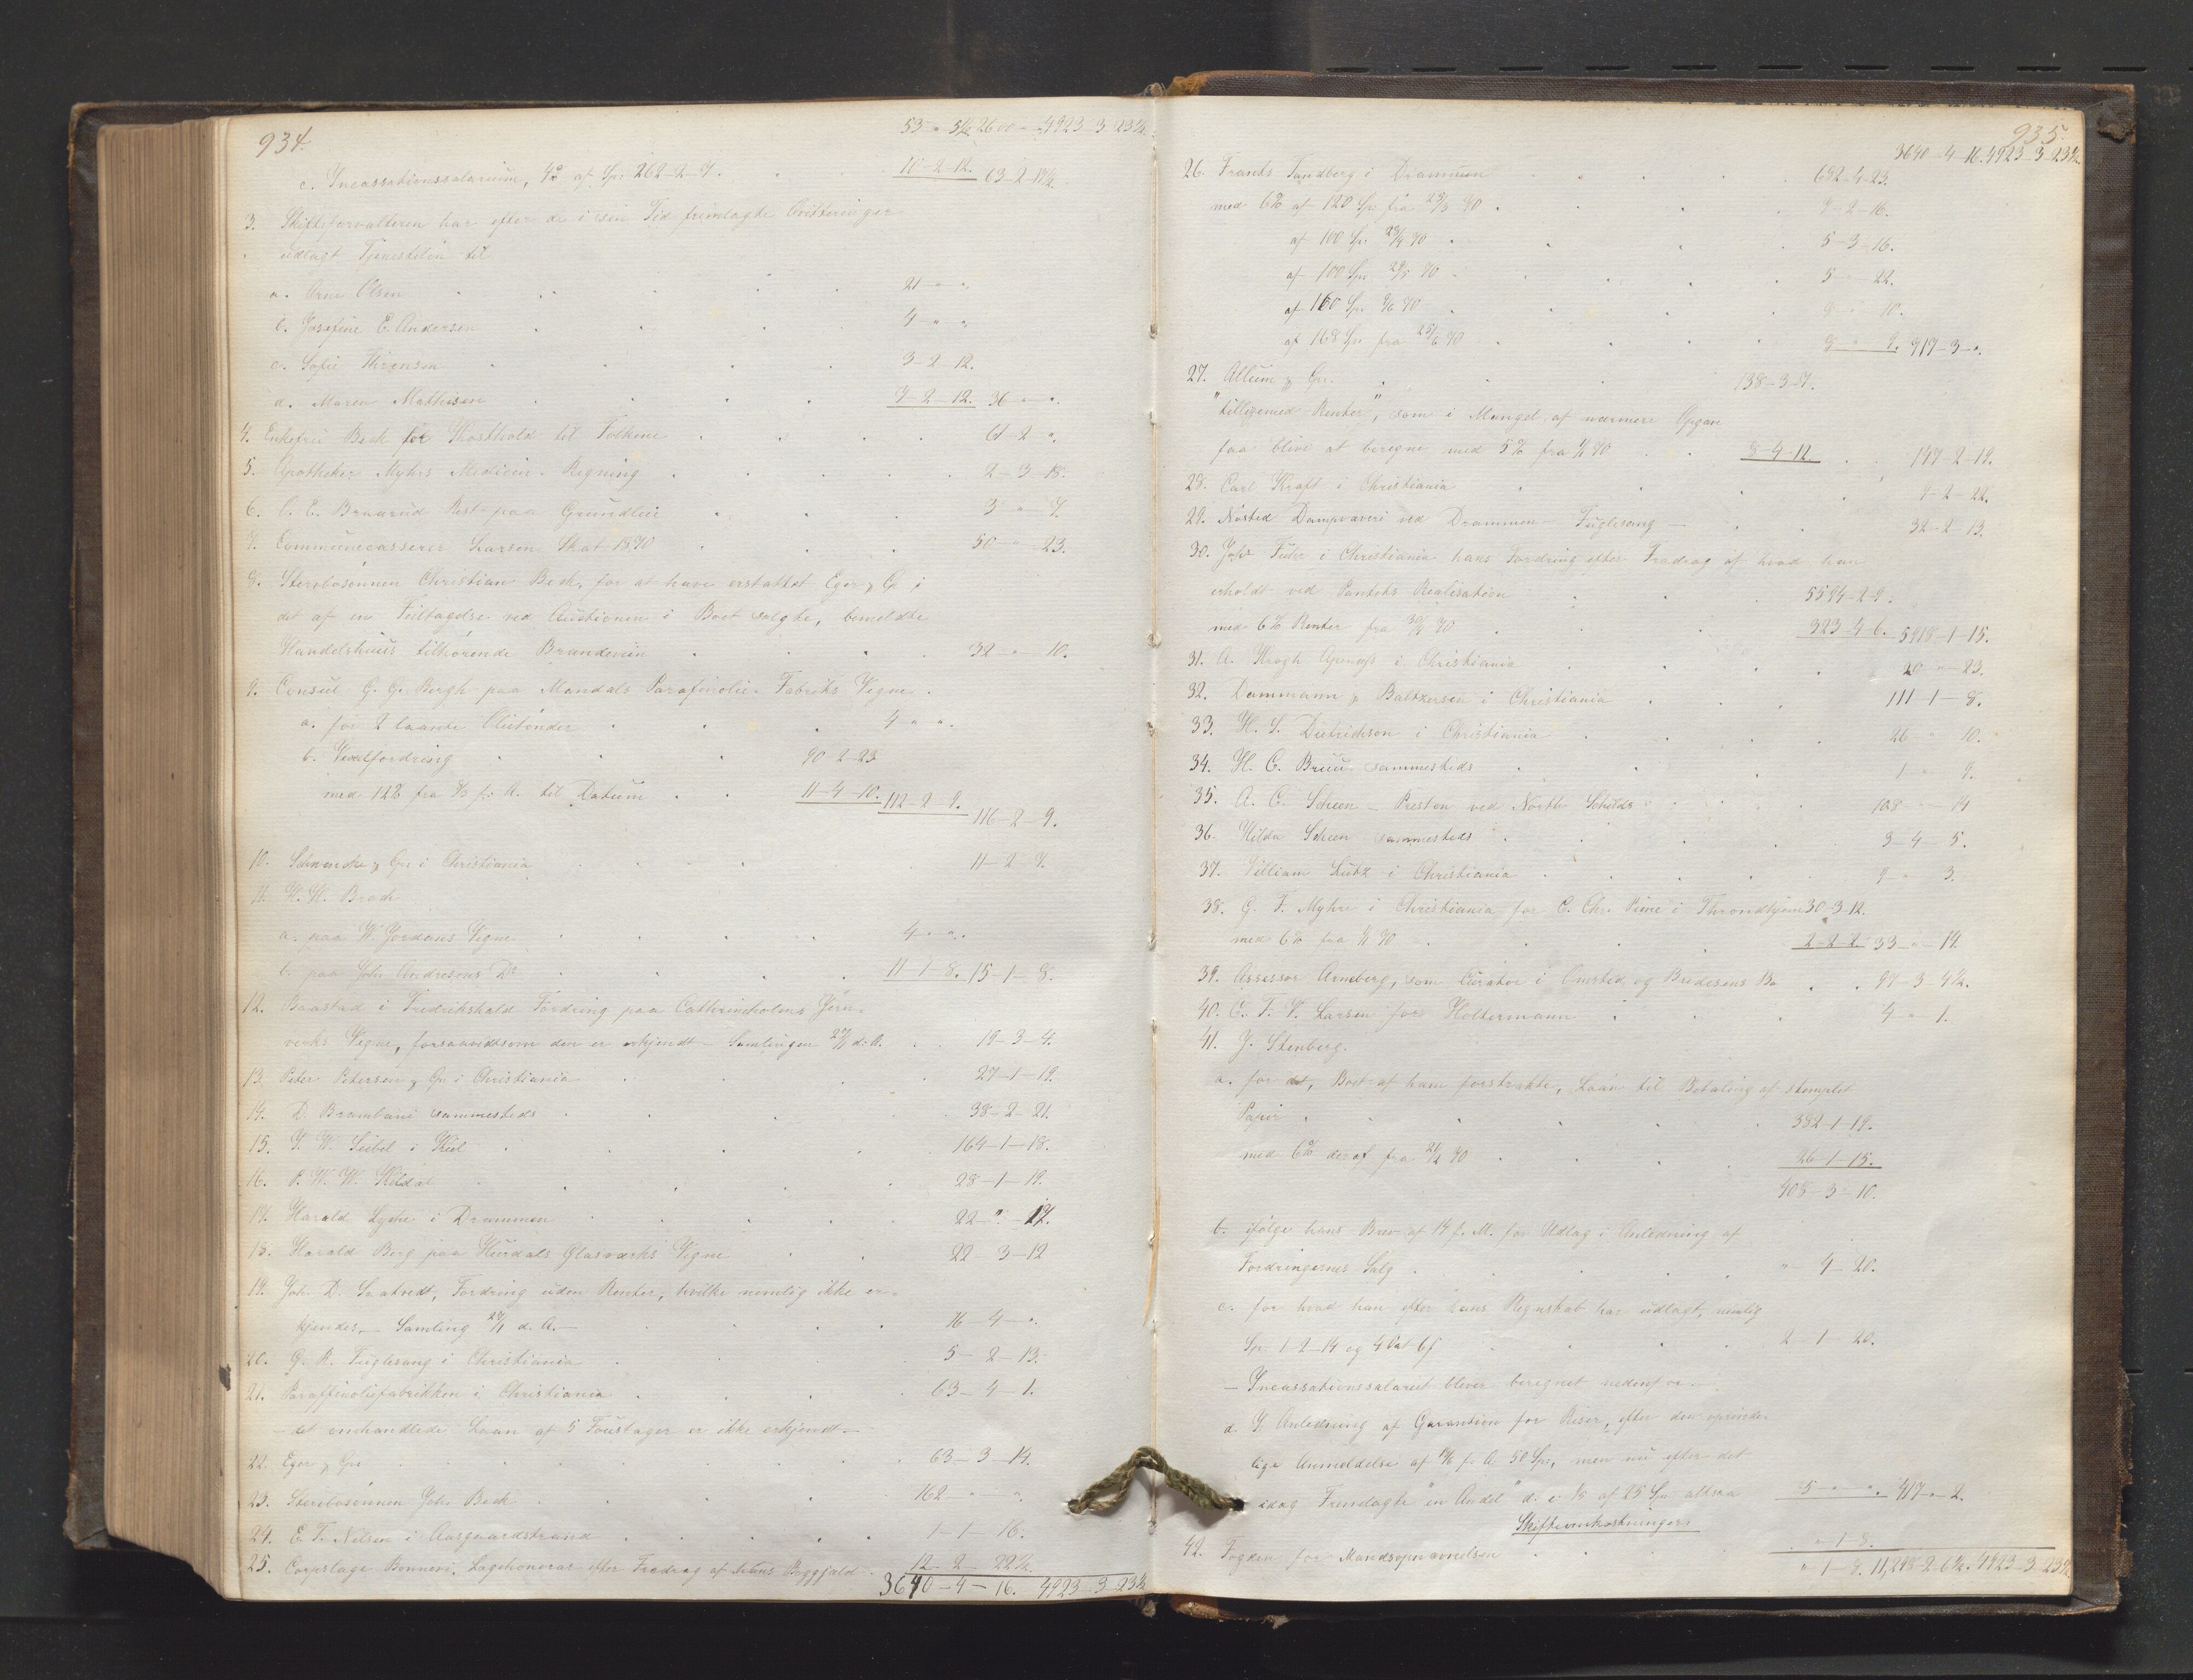 934.
53 " 5½ 2600 " " 4923-3-23½
c. Incassationssalarium, 4% af Sp: 262-2-7. 10-2-12. 63-2-17½.
3. Skifteforvalteren har efter de i sin Tid fremlagte Qvitteringer
udlagt Tjenesteløn til
a. Arne Olsen 21 " "
b. Josefine E. Andersen 4 " "
c. Sofie 3-2-12.
d. Maren Mathisen 7-2-12. 36 " "
4. Enkefru Beck for Kosthold til Folkene 61-2 "
5. Apotheker Myhrs Medicin-Regning 2-3-18.
6. O. E. Braarud Rest paa Grundleie 3 " 7.
7. Communecasserer Larsen Skat 1870 50 " 23.
8. Stervbosønnen Christian Beck, for at have erstattet Eger & Co i
det af en Feiltagelse ved Auctionen i Boet solgte, bemeldte
Handelshuus tilhørende Brændeviin 32 " 10.
9. Consul G. G. Bergh paa Mandals Parafinolie-Fabriks Vegne.
a. for 2 laante Olietønder 4 " "
b. Vexelfordring 90-2-23
med 12% fra til Datum 11-4-10. 112-2-9.
116-2-9.
10. & Co i Christiania 11-2-7.
11. H. H. Broch
a. paa W. Jordans Vegne 4 " "
b. paa Joh. Andresens Do 11-1-8. 15-1-8.
12. Baastad i Fredrikshald Fordring paa Cathrineholms Jern-
verks Vegne, forsaavidtsom den er erkjendt - Samlingen 27/1 d. A. 19-3-4.
13. Peter Petersen & Co i Christiania 27-1-19.
14. D. Brambani sammesteds 38-2-21.
15. J. W. Seibel i Kiel 164-1-18.
16. P. W. W. Kildal 28-1-19.
17. Harald Lyche i Drammen 22 " 12.
18. Harald Berg paa Hurdals Glasværks Vegne 22-3-12
19. Joh. D. Fordring uden Renter, hvilke nemlig ikke er-
kjendes. - Samling 27/1 d. A. - 16-4 "
20. G. R. Fuglesang i Christiania 5-2-13.
21. Paraffinoliefabrikken i Christiania 63-4-1.
- det omhandlede Laan af 5 Foustager er ikke erkjendt -
22. Eger & Co 63-3-14.
23. Stervbosønnen Johs Beck 162 " "
24. E. T. Nelsen i Aasgaardstrand 1-1-16.
25. Corpslæge Bonnevi, Lægehonorar efter Fradrag af hans Byggjæld 12-2-22½.
3640-4-16. 4923-3-23½
935.
3640-4-16. 4923-3-23½
26. Frants Tandberg i Drammen 682-4-23.
med 6% af 120 Sp: fra 23/3 70 7-2-16.
af 100 Sp: 23/4 70 5-3-16.
af 100 Sp: 5 " 22.
af 160 Sp: 9/6 70 10.
af 168 Sp: fra 25/6 70 719-3 "
27. Allum & Co. 138-3-7.
"tilligemed Renter", som i Mangel af nærmere Opgave
faa blive at beregne med 5% fra 70 8-4-12. 147-2-19.
28. Carl Kraft i Christiania 7-2-22.
29. Nøsted Dampvæveri ved Drammen - Fuglesang - 32-2-13.
30. Johs Fuhr i Christiania hans Fordring efter Fradrag af hvad han
erholdt ved Pantets Realisation 5594-2-9.
med 6% Renter fra 70 323-4-6. 5918-1-15.
31. A. Krogh i Christiania 20 " 23.
32. Dammann & Baltzersen i Christiania 111-1-8.
33. H. S. Dietrichson i Christiania 26 " 10.
34. H. C. Bruu sammesteds 1 " 9.
35. A. C. Scheen - Preston ved North Schilds 108 " 14
36. Hilda Scheen sammesteds 3-4-5.
37. William Lutz i Christiania 3.
38. G. F. Myhre i Christiania for C. Chr. i Throndhjem 30-3-12.
med 6% fra 70 2-2-2. 33 " 14.
39. Assessor Arneberg, som Curator i Omsted og Bredesens Bo 97-3-4½.
40. C. F. V. Larsen for Holtermann 4 " 1.
41. J. Stenberg.
a. for det, Boet af ham forstrakte, Laan til Betaling af stemplet
Papir 382-1-19.
med 6% deraf fra 70 26-1-15.
408-3-10.
b. ifølge hans Brev af 14 f. M. for Udlæg i Anledning af
Fordringernes Salg " 4-20.
c. for hvad han efter hans Regnskab har udlagt, nemlig
Sp: 1-2-14 og 4 6 2-1-20.
- Incassationssalariet bliver beregnet nedenfor. -
d. I Anledning af Garantien for Riser, efter den oprinde-
lige Anmeldelse af f. A. 50 Sp:, men nu efter det
idag Fremlagte "en Andel" d. e. 1/5 af 25 Sp: altsaa 5 " " 417 " 2.
Skifteomkostninger.
42. Fogden for Mandsopnævnelsen " 1-8.
" 1-8. 11,248-2-6½. 4923-3-23½